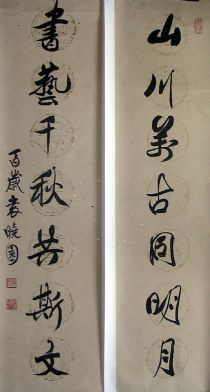 山川萬古同明月
書藝千秋共斯文
百歲袁曉園